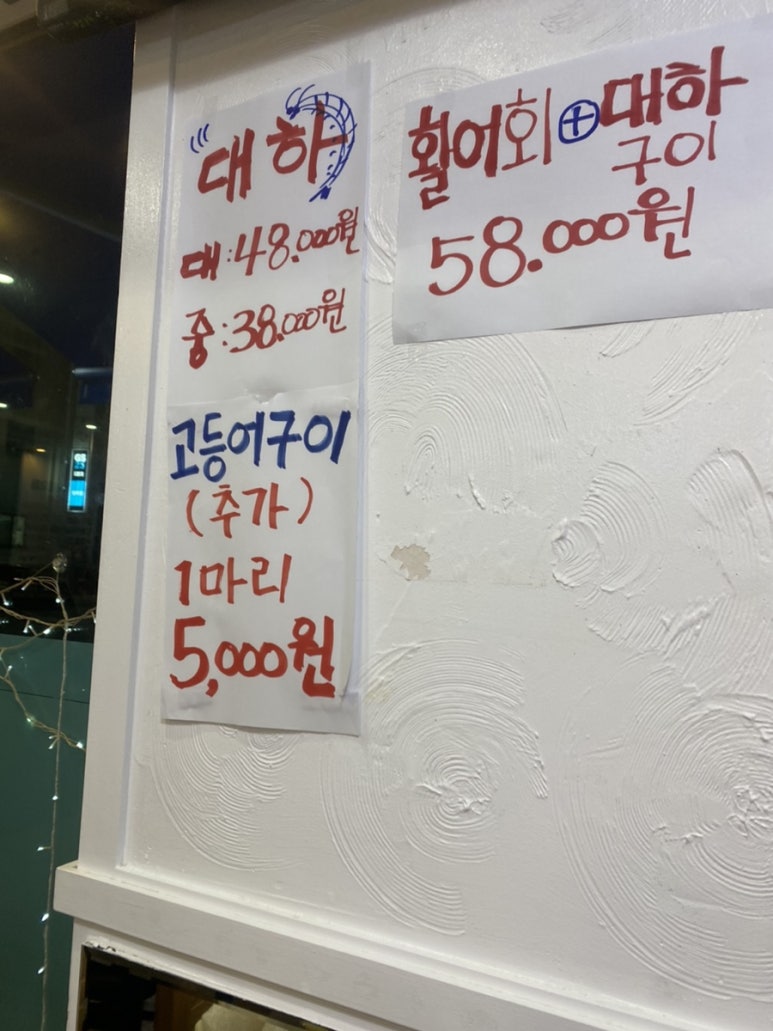 대하
대:48.000원
중:38.000원
고등어구이
(추가)
1마리
5,000원
활어회⊕대하
구이
58.000원
GS